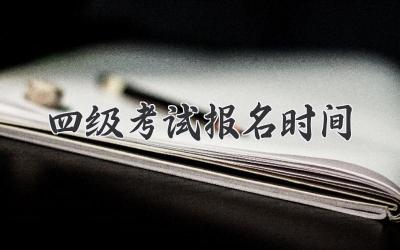 四级考试报名时间